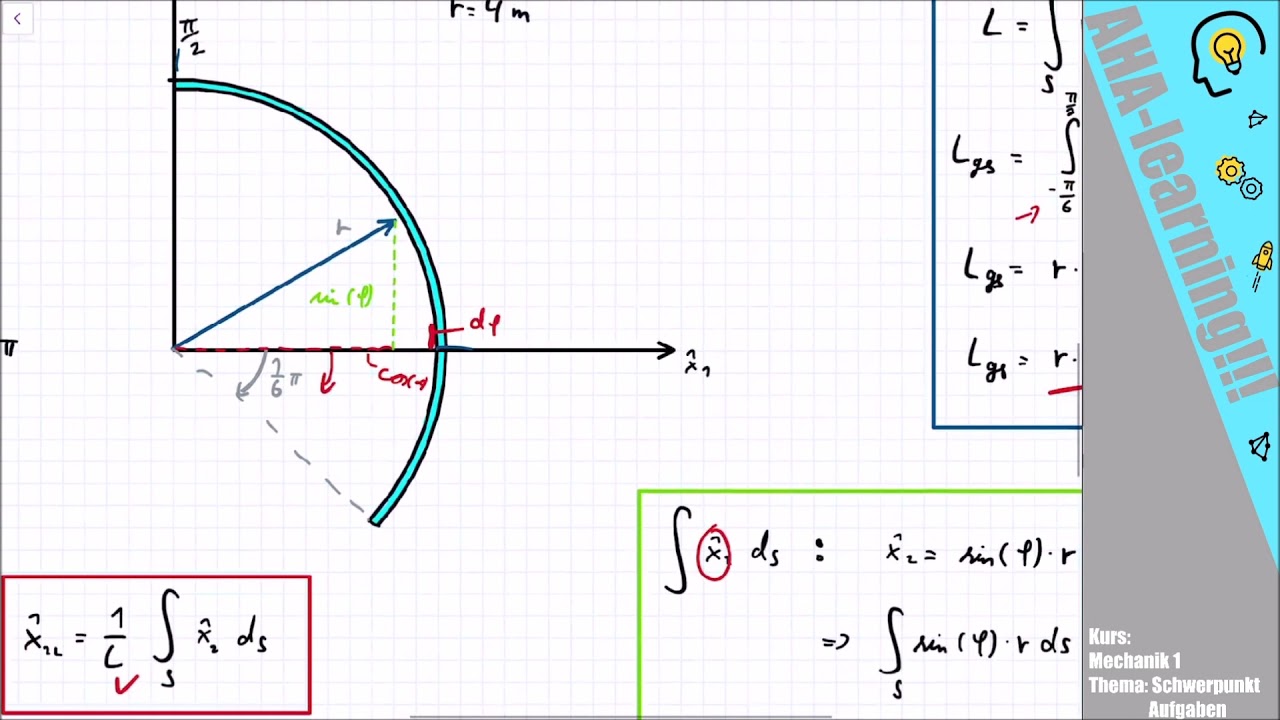 r = 4 m
π/2
r
sin(φ)
dφ
π
1/6 π
x̂₁
L = ∫
S
L_gs = ∫
-π/6
L_gs = r ·
L_gs = r ·
∫ x̂₁ ds : x̂₂ = sin(φ) · r
=> ∫_S sin(φ) · r ds
= 1/L ∫_S x̂₂ ds
AHA-learning!!!
Kurs:
Mechanik 1
Thema: Schwerpunkt
Aufgaben